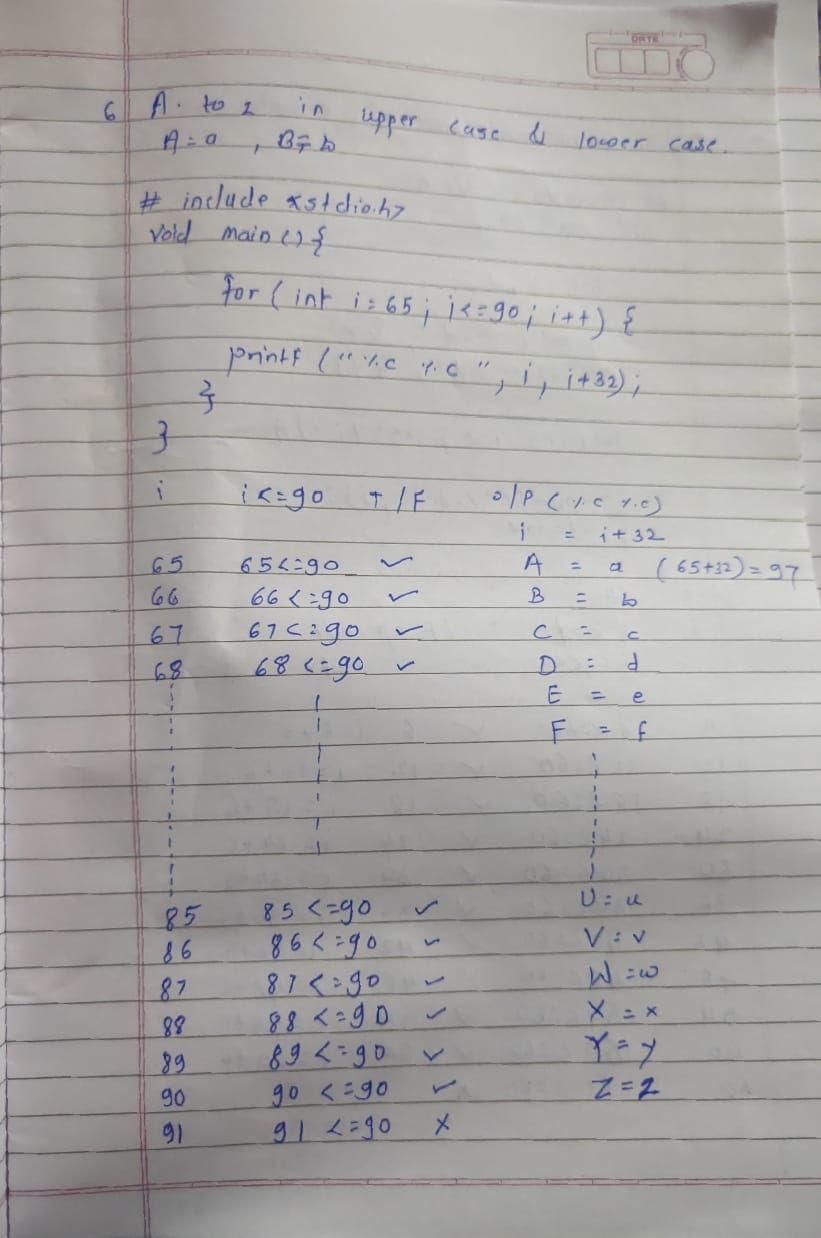 DATE
6 A. to z in upper case & lower case.
A = a , B = b
# include <stdio.h>
void main () {
for ( int i = 65 ; i <= 90 ; i++ ) {
printf ( " %c %c " , i , i+32 ) ;
}
}
i i <= 90 T / F o/p ( %c %c )
i = i + 32
65 65 <= 90 ✓ A = a ( 65+32 ) = 97
66 66 <= 90 ✓ B = b
67 67 <= 90 ✓ C = c
68 68 <= 90 ✓ D = d
E = e
F = f
85 85 <= 90 ✓ U = u
86 86 <= 90 ✓ V = v
87 87 <= 90 ✓ W = w
88 88 <= 90 ✓ X = x
89 89 <= 90 ✓ Y = y
90 90 <= 90 ✓ Z = z
91 91 <= 90 ×